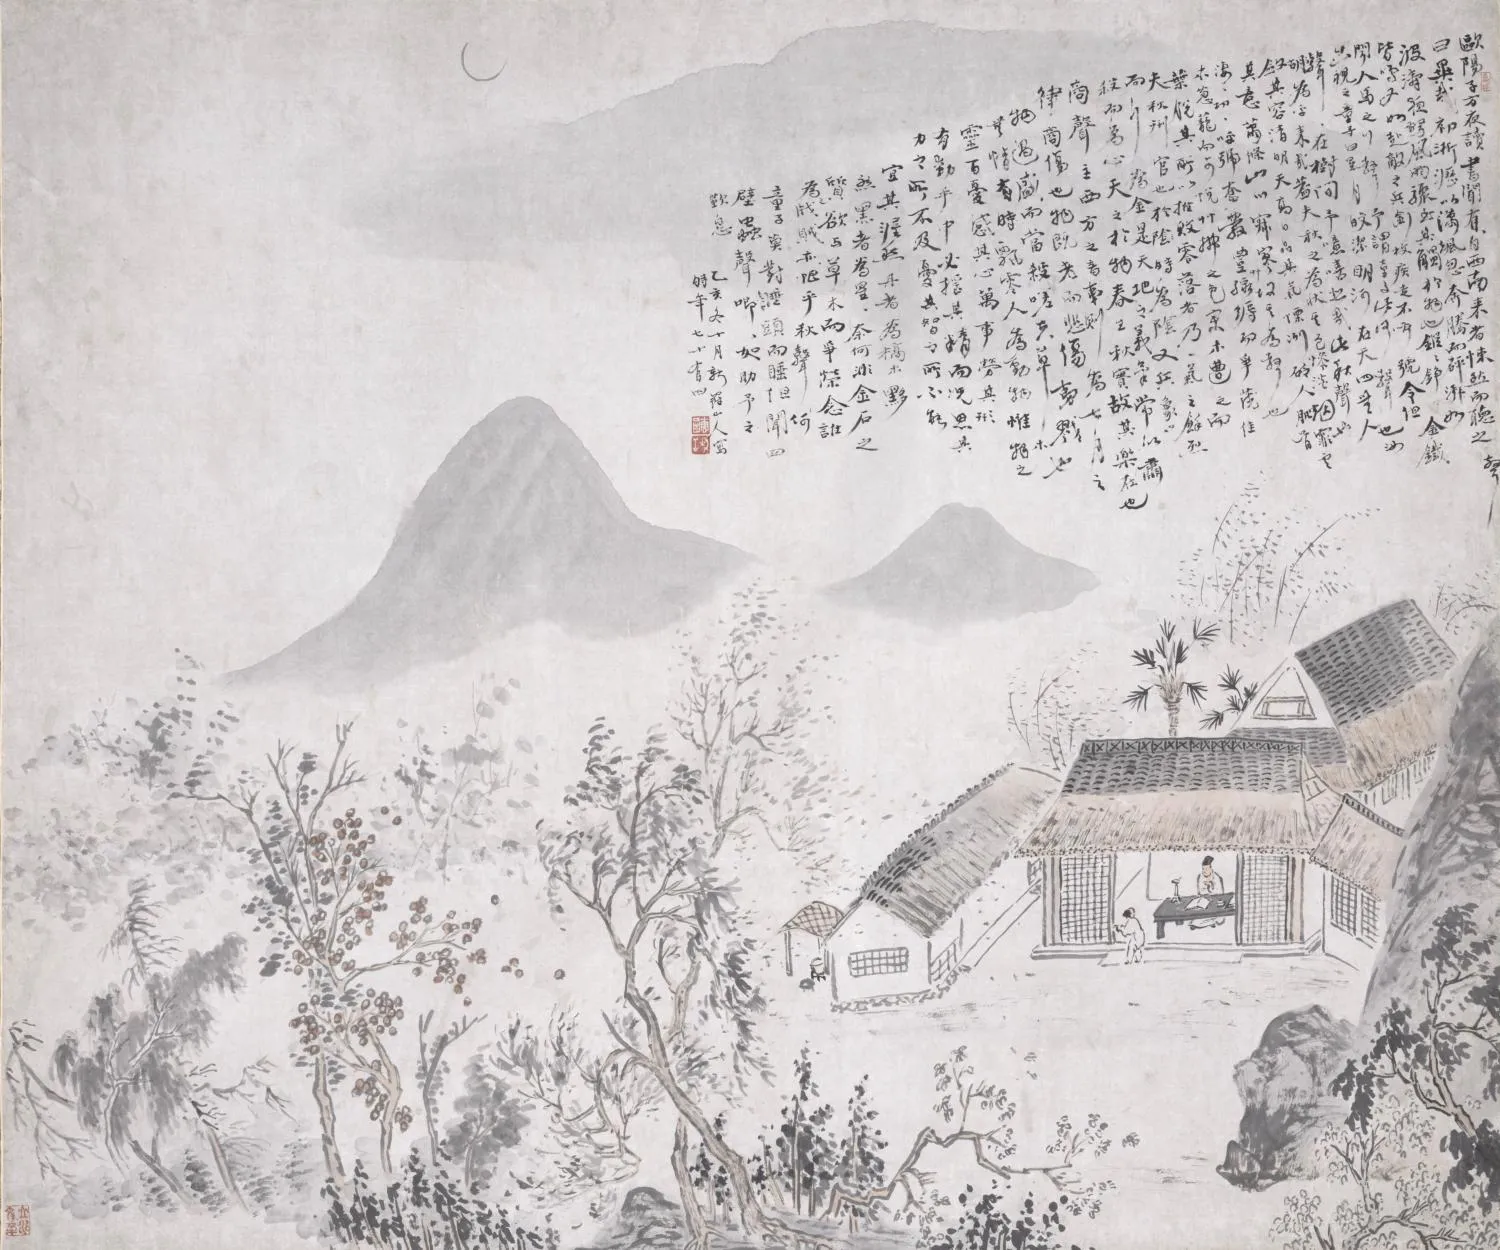 歐陽子方夜讀書聞有自西南來者悚然而聽之
曰異哉初淅瀝以瀟颯忽奔騰而砰湃如
波濤夜驚風雨驟至其觸於物也鏦〻錚〻金鐵
皆鳴又如赴敵之兵銜枚疾走不聞號令但
聞人馬之行聲予謂童子此何聲也汝
出視之童子曰星月皎潔明河在天四無人
聲〻在樹間予曰噫嘻悲哉此秋聲也
胡為乎來哉蓋夫秋之為狀其色慘淡烟霏雲
斂其容清明天高日晶其氣慄冽砭人肌骨
其意蕭條山川寂寥故其為聲也
淒〻切〻呼號奮發豐草綠縟而爭茂佳
木蔥籠而可悅草拂之而色變木遭之而
葉脫其所以摧敗零落者乃一氣之餘烈
夫秋刑官也於時為陰又兵象也
而行為金是天地之義氣常以肅
殺而為心天之於物春生秋實故其樂在也
商聲主西方之音夷則為七月之
律商傷也物既老而悲傷夷戮也
物過盛而當殺嗟夫草木
無情有時飄零人為動物惟物之
靈百憂感其心萬事勞其形
有動乎中必搖其精而況思其
力之所不及憂其智之所不能
宜其渥然丹者為槁木黟
然黑者為星〻奈何非金石之
質欲與草木而爭榮念誰
為之戕賊亦恨乎秋聲何
童子莫對垂頭而睡但聞四
壁蟲聲唧〻如助予之
歎息
乙亥冬十月新羅山人寫
時年七十有四